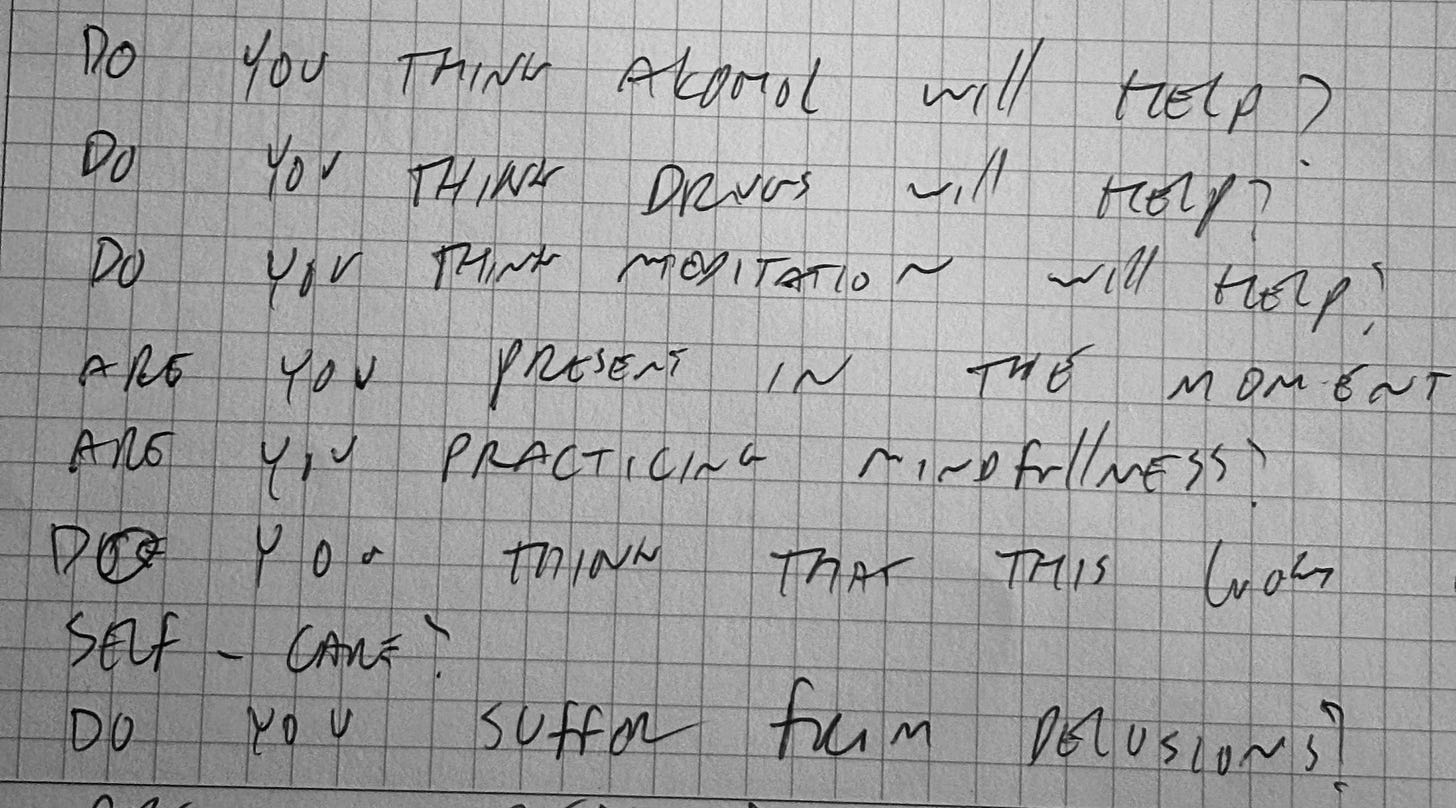 DO YOU THINK AlkoHol will HELP?
DO YOU THINK DRUGS will HELP?
DO YOU THINK MEDITATION will HELP?
ARE YOU PRESENT IN THE MOMENT
ARE YOU PRACTICING MINDfullNESS?
DO YOU THINK THAT THIS
SELf - CARE?
DO YOU SUffER from DELUSIONS?